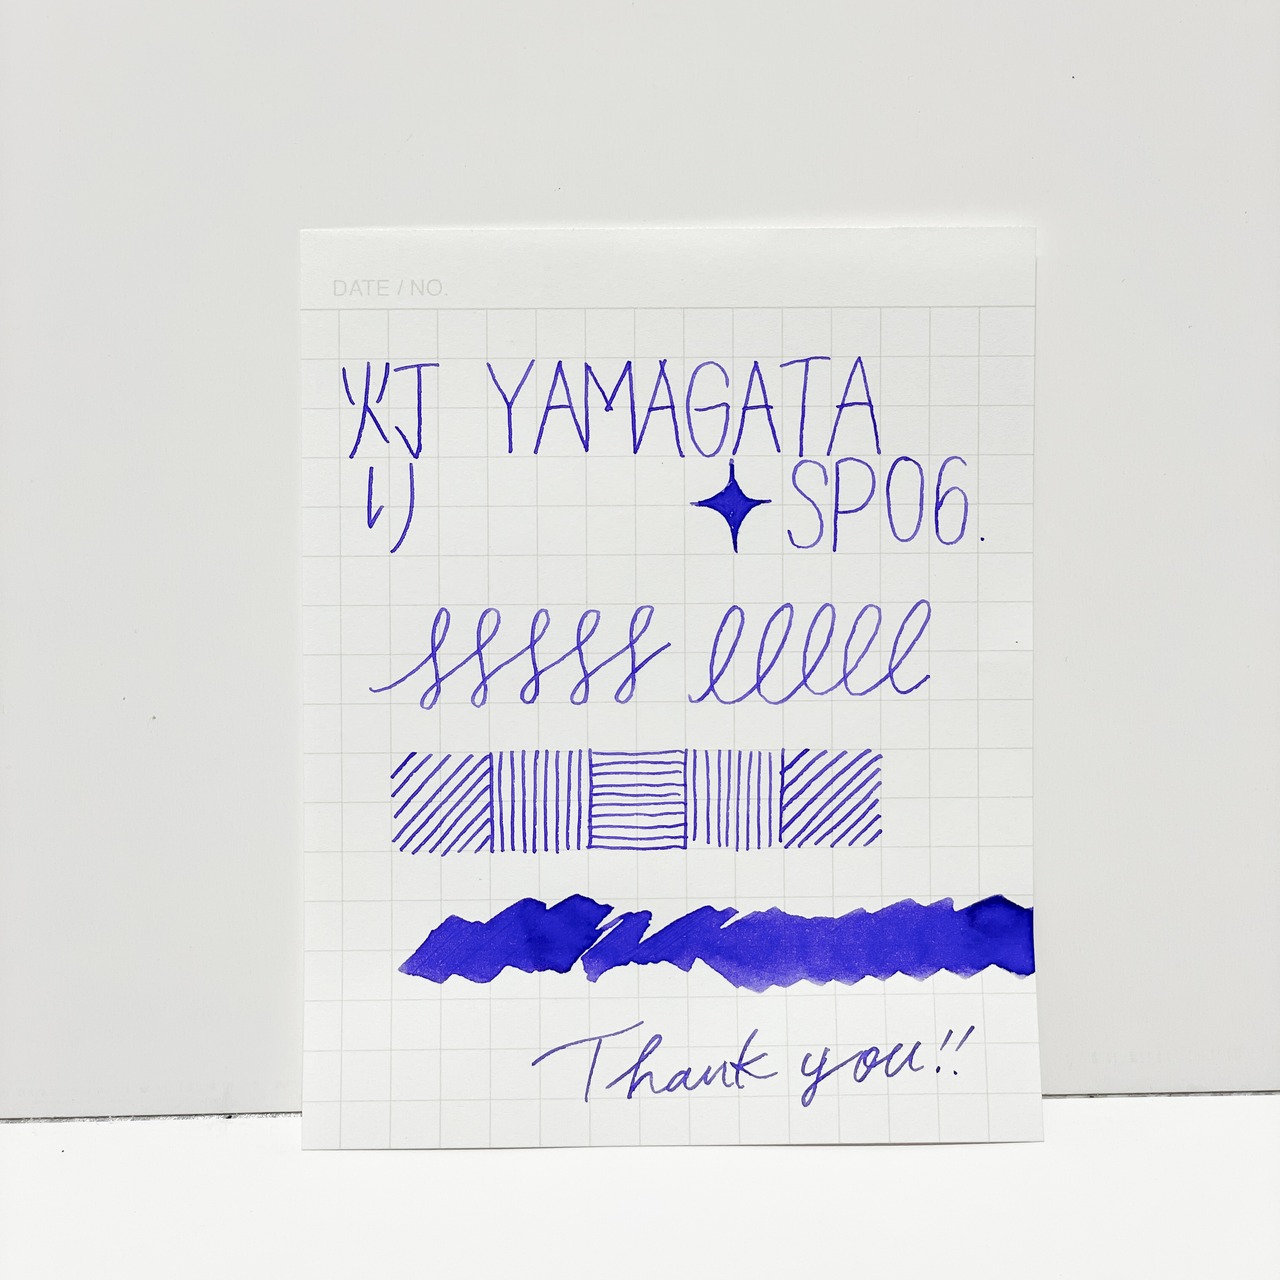 DATE / NO.
灯り YAMAGATA
SP06.
sssss lllll
Thank you!!